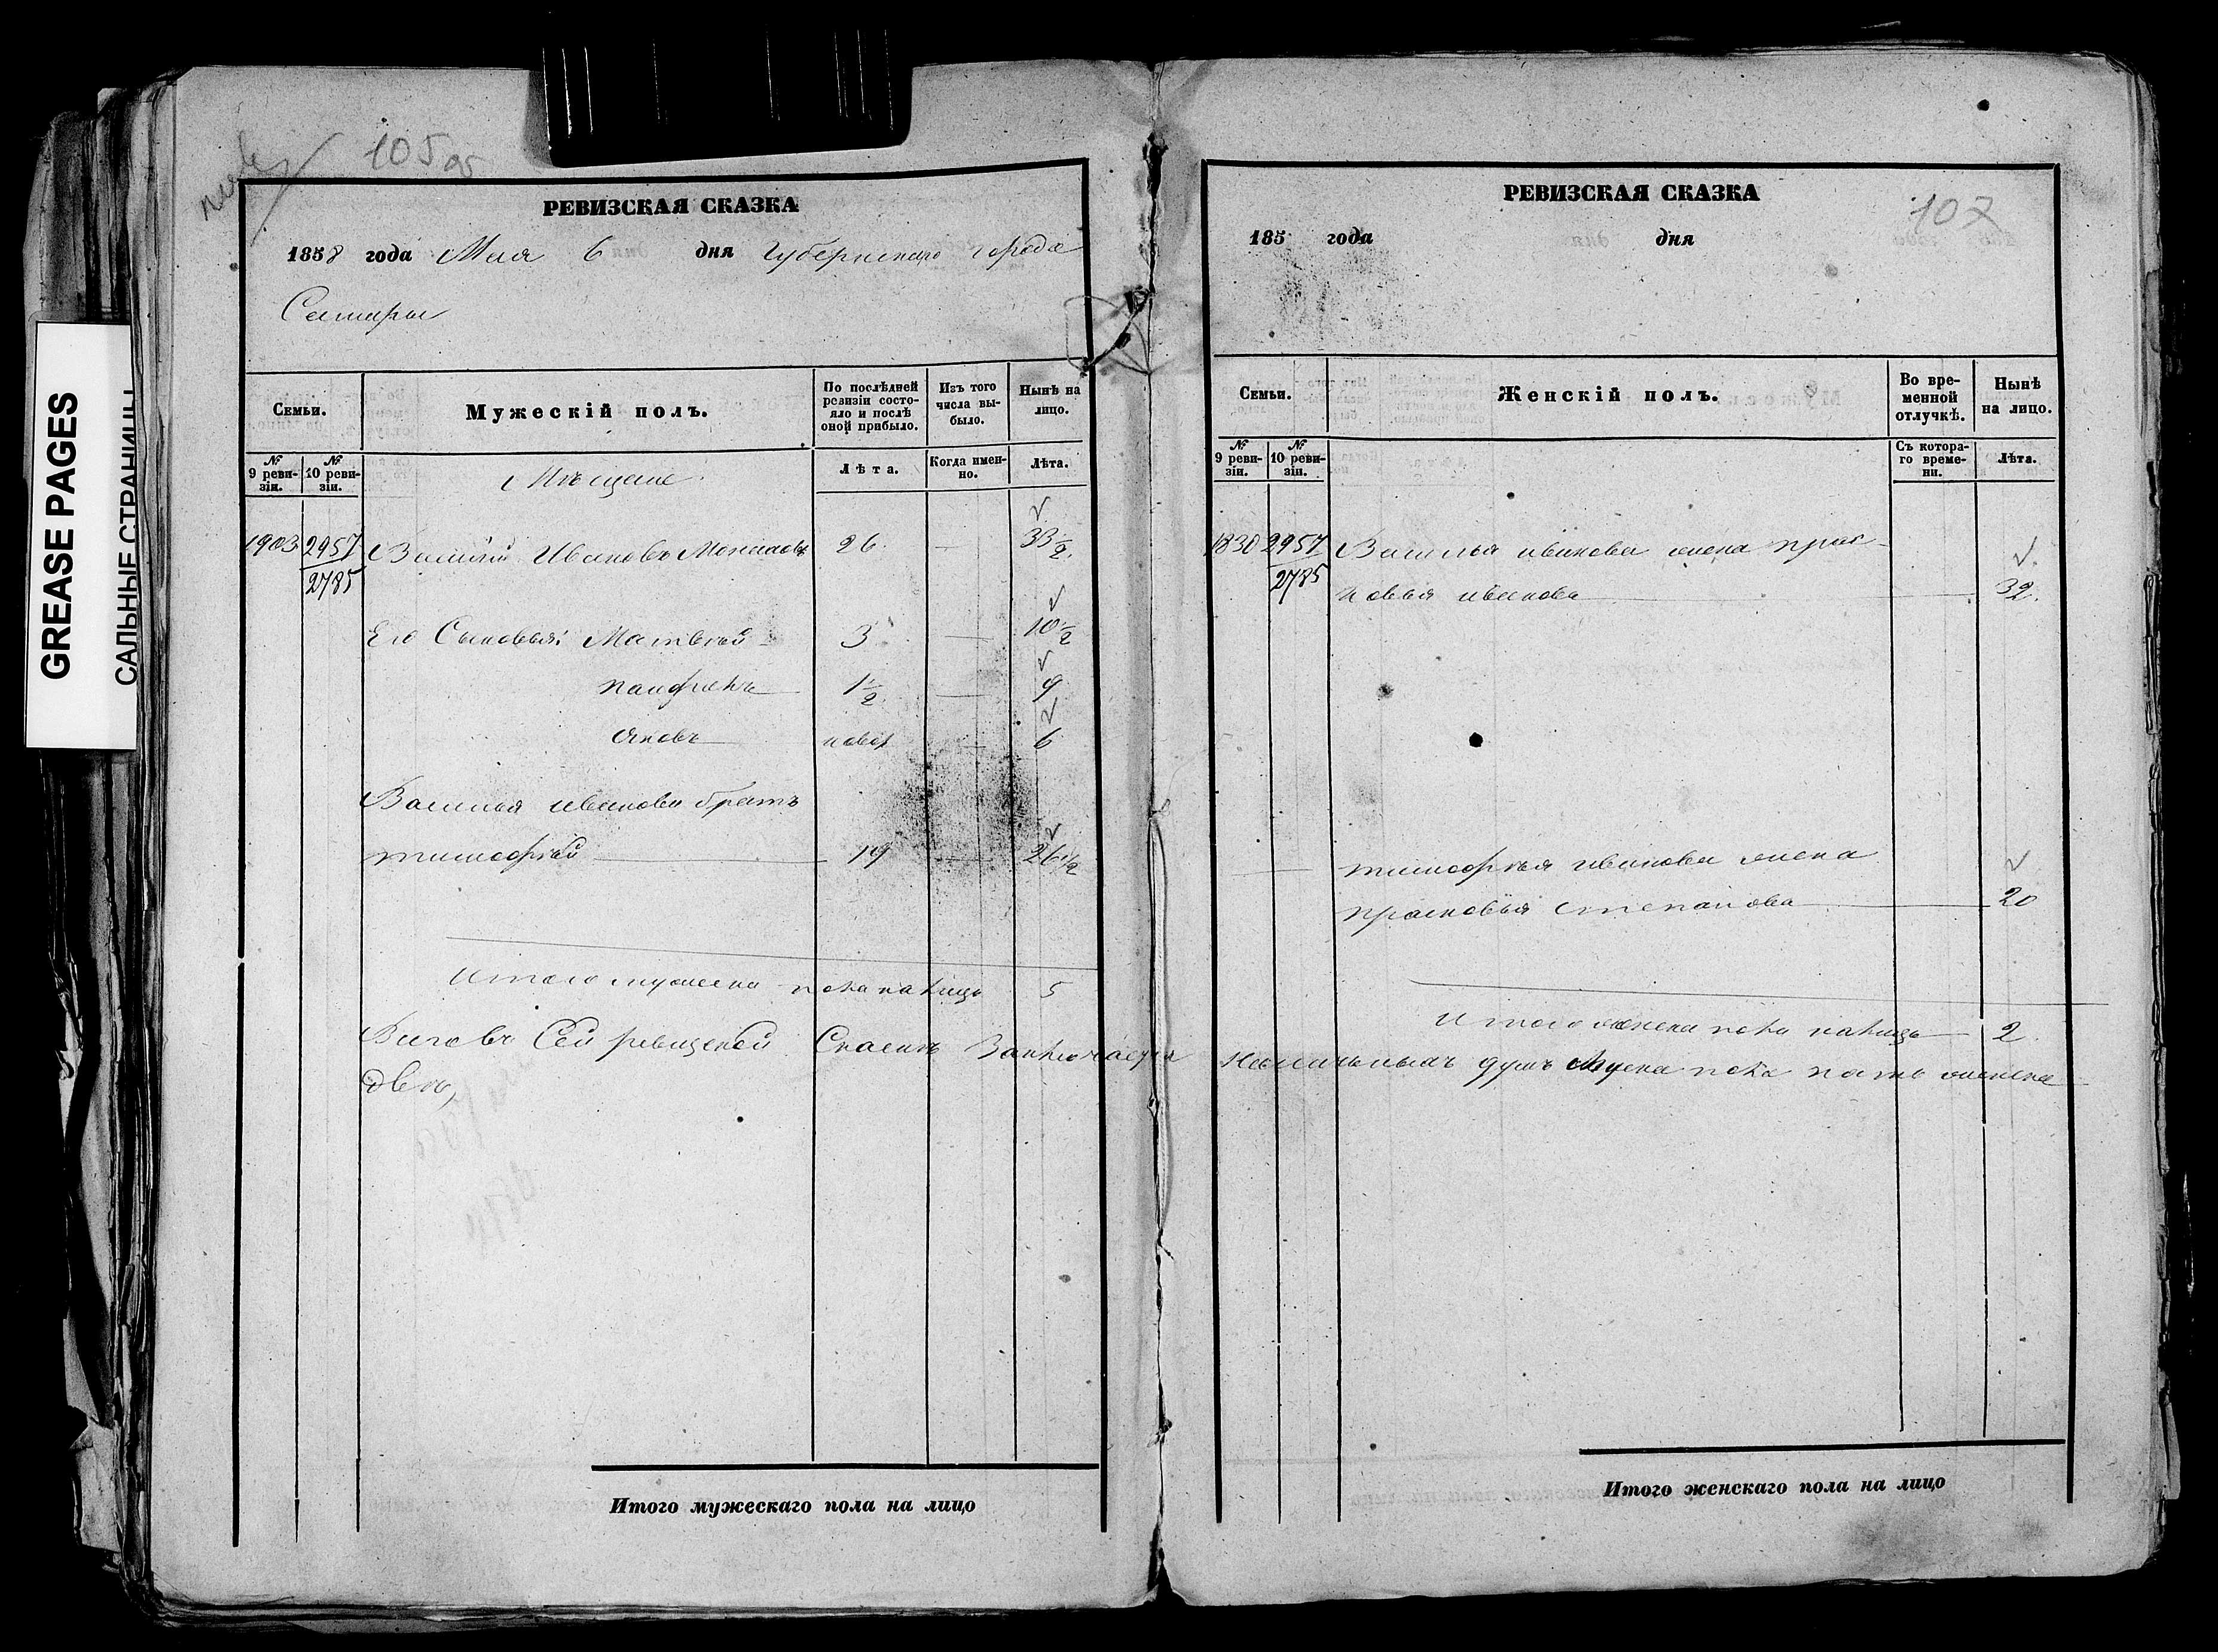 105 об
РЕВИЗСКАЯ СКАЗКА
1858 года Мая 6 дня Губернскаго города
Самары
Семьи.
Мужескій полъ.
По послѣдней ревизіи состояло и послѣ оной прибыло.
Изъ того числа выбыло.
Нынѣ на лицо.
№ 9 ревизіи.
№ 10 ревизіи.
Лѣта.
Когда именно.
Лѣта.
Мѣщане
1903 2957 Василий Ивановъ 26 — 33 1/2
2785
Его Сыновья: Матвѣй 3 — 10 1/2
Панфилъ 1 1/2 — 9
Яковъ новор — 6
Василья Иванова братъ
Тимофѣй 19 — 26 1/2
Итого мужеска пола на лицо 5
Всего въ Сей ревизской Сказкѣ Заключается
двѣ,
Итого мужескаго пола на лицо
107
РЕВИЗСКАЯ СКАЗКА
185 года дня
Семьи.
Женскій полъ.
Во временной отлучкѣ.
Нынѣ на лицо.
№ 9 ревизіи.
№ 10 ревизіи.
Съ котораго времени.
Лѣта.
1830 2957 Василья Иванова жена Прас-
2785 ковья Иванова 32.
Тимофѣя Иванова жена
Прасковья Степанова 20
Итого женска пола на лицо 2.
наличныхъ душъ Мужска пола пять женска
Итого женскаго пола на лицо
GREASE PAGES
САЛЬНЫЕ СТРАНИЦЫ